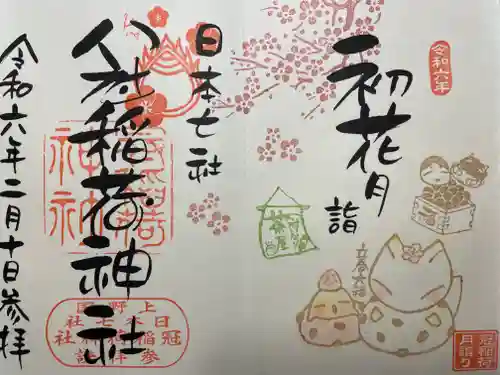 令和六年
初花月
詣
茶屋
冠稲荷
月詣り
日本七社
冠稲荷神社
上野国
日本七社
冠稲荷神社
令和六年二月十日参拝